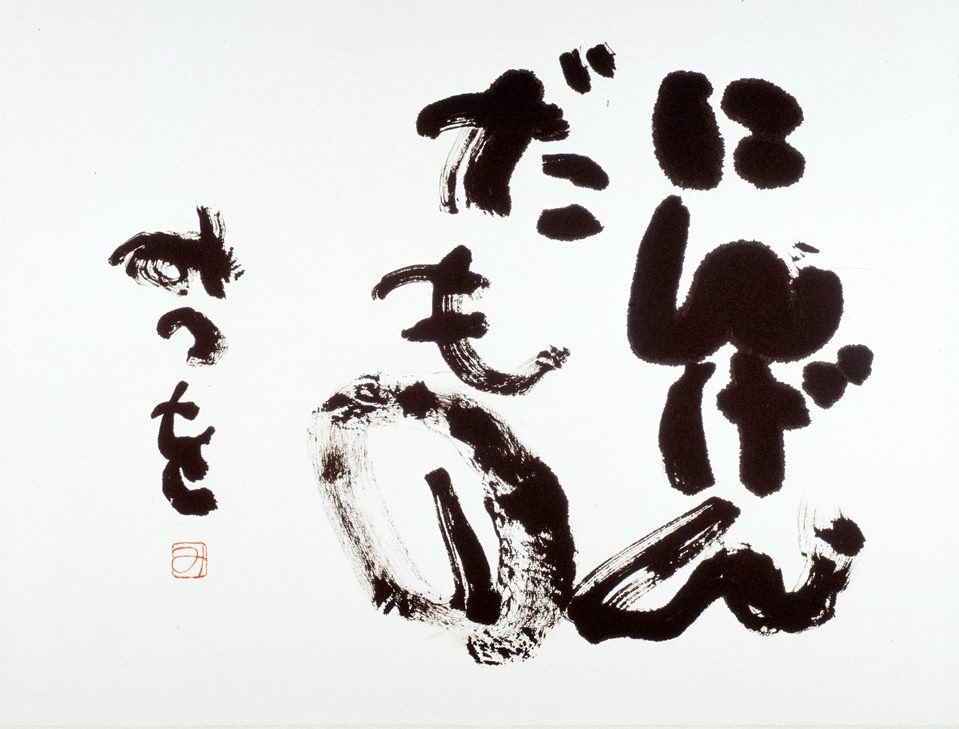 にんげん
だもの
みつを
み